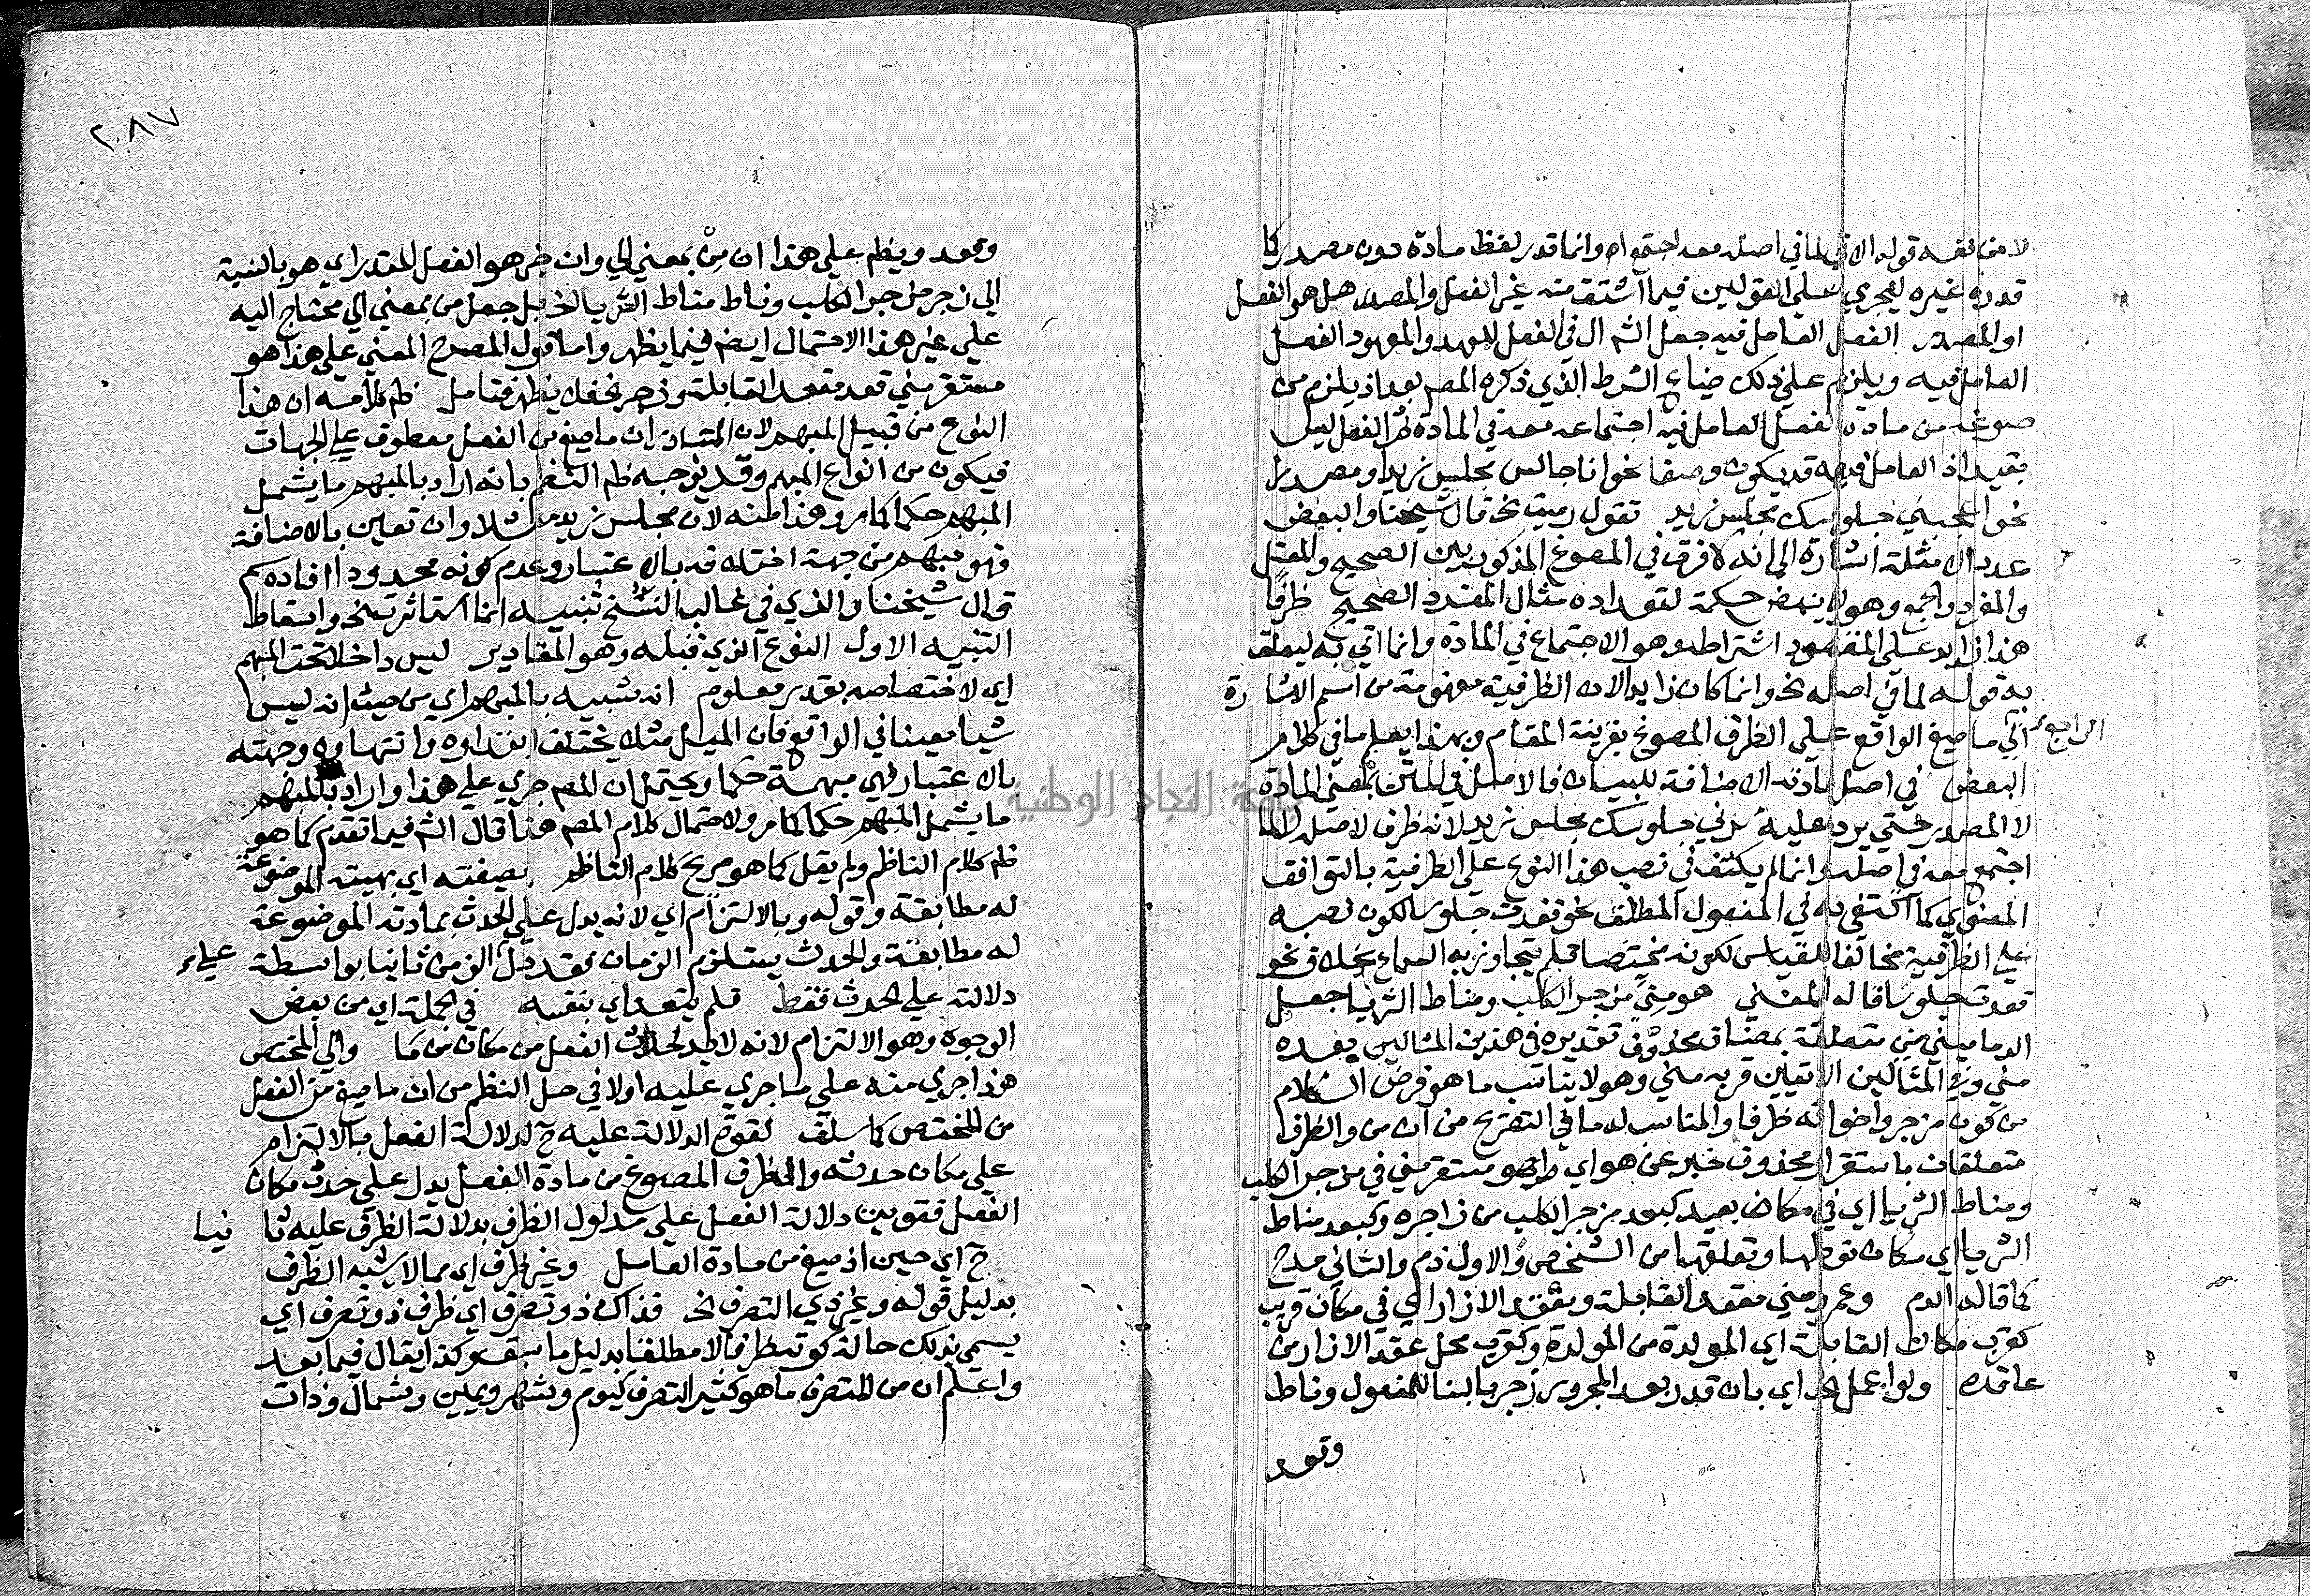 لا من لفظه قوله الاتي لما في اصله معه اجتمع اه وانما قدر لفظ مادة دون مصدر كما
قدره غيره ليجري على القولين فيما اشتق منه غير الفعل والمصدر هل هو الفعل
او المصدر الفعل العامل فيه جعل الشه ال في الفعل للعهد والمعهود الفعل
العامل فيه ويلزم على ذلك ضياع الشرط الذي ذكره المصه بعد اذ يلزم من
صوغه من مادة الفعل العامل فيه اجتماعه معه في المادة ثم الفعل ليس
بقيد اذ العامل فيه قد يكون وصفا نحو انا جالس مجلس زيد او مصدرا
نحو اعجبني جلوسك مجلس زيد تقول رميت نخ قال شيخنا والبعض
عدد الامثلة اشارة الى انه لا فرق في المصوغ المذكور بين الصحيح والمعتل
والمفرد والجمع وهو لا ينهض حكمة لتعداده مثال المفرد الصحيح ظرفا
هذا زايد على المقصود اشتراطه وهو الاجتماع في المادة وانما اتي به ليعلق
به قوله لما في اصله نخ وانما كان زايدا لان الظرفية مفهومة من اسم الاشارة
الراجع الى ما صيغ الواقع على الظرف المصوغ بقرينة المقام وبهذا يعلم ما في كلام
البعض في اصل مادته الاضافة للبيان فالاصل في المتن بمعنى المادة
لا المصدر حتى يرد عليه سرني جلوسك مجلس زيد لانه ظرف لاصله لما
اجتمع معه في اصله وانما لم يكتف في نصب هذا النوع على الظرفية بالتوافق
المعنوي كما اكتفي به في المفعول المطلق نحو قعدت جلوسا لكون نصبه
على الظرفية مخالفا للقياس لكونه مختصا فلم يتجاوز به السماع بخلاف نحو
قعدت جلوسا قاله في المغني هو مني مزجر الكلب ومناط الثريا جعل
الدماميني من متعلقة بمضاف محذوف تقديره في هذين المثالين بعده
مني وفي المثالين الاتيين قربه مني وهو لا يناسب ما هو فرض الكلام
من كون مزجر واخواته ظرفا والمناسب له ما في التصريح من ان من والظرف
متعلقان باستقرار محذوف خبر عن هو اي هو مستقر مني في مزجر الكلب
ومناط الثريا اي في مكان بعيد كبعد مزجر الكلب من زاجره وكبعد مناط
الثريا اي مكان نوطها وتعلقها من الشخص والاول ذم والثاني مدح
كما قاله الدم وعمرو مني مقعد القابلة ومعقد الازار اي في مكان قريب
كقرب مكان القابلة اي المولدة من المولدة وكقرب محل عقد الازار من
عاقده ولو اعمل نخ اي بان قدر بعد المجرور زجر بالبنا للمفعول وناط
وقعد
٢٠٨٧
وقعد ويظهر على هذا ان من بمعنى الى وان خبر هو الفعل المقدر اي هو بالنسبة
الي زجر مزجر الكلب وناط مناط الثريا الخ بل جعل من بمعنى الى محتاج اليه
على غير هذا الاحتمال ايضه فيما يظهر واما قول المصرح المعنى على هذا هو
مستقر مني قعد مقعد القابلة وزجر نخ فلا يظهر فتامل ظه كلامه ان هذا
النوع من قبيل المبهم لان المتبادر ان ما صيغ من الفعل معطوف على الجهات
فيكون من انواع المبهم وقد يوجه ظه النظم بانه اراد بالمبهم ما يشمل
المبهم حكما كما مر وهذا منه لان مجلس زيد مثلا وان تعين بالاضافة
فهو مبهم من جهة اختلافه بالاعتبار وعدم كونه محدودا افاده سم
قال شيخنا والذي في غالب النسخ تنبيه انما استاثرت نخ واسقاط
التنبيه الاول النوع الذي قبله وهو المقادير ليس داخلا تحت المبهم
اي لاختصاصه بقدر معلوم انه شبيه بالمبهم اي من حيث انه ليس
شيا معينا في الواقع فان الميل مثلا يختلف ابتداوه وانتهاوه وجهته
بالاعتبار فهي مبهمة حكما ويحتمل ان المصه جري على هذا واراد بالمبهم
ما يشمل المبهم حكما كما مر ولاحتمال كلام المصه هذا قال الشه فيما تقدم كما هو
ظه كلام الناظم ولم يقل كما هو صريح كلام الناظم بصيغته اي بهيئته الموضوعة
له مطابقة وقوله وبالالتزام اي لانه يدل على الحدث بمادته الموضوعة
له مطابقة والحدث يستلزم الزمان فقد دل على الزمن ثانيا بواسطة
دلالته على الحدث فقط فلم يتعد اي بنفسه في الجملة اي من بعض
الوجوه وهو الالتزام لانه لا بد لحدث الفعل من مكان ما والى المختص
هذا جري منه على ما جري عليه اولا في حل النظم من ان ما صيغ من الفعل
من المختص كما سلف لقوة الدلالة عليه ح لدلالة الفعل بالالتزام
على مكان حدثه والظرف المصوغ من مادة الفعل يدل على حدث مكان
الفعل فقويت دلالة الفعل على مدلول الظرف بدلالة الظرف عليه ثانيا
ح اي حين اذ صيغ من مادة العامل وغير ظرف اي مما لا يشبه الظرف
بدليل قوله وغير ذي التصرف نخ فذاك ذو تصرف اي ظرف ذو تصرف اي
يسمى بذلك حالة كونه ظرفا لا مطلقا بدليل ما سبق وكذا يقال فيما بعد
واعلم ان من المتصرف ما هو كثير التصرف كيوم وشهر ويمين وشمال وذات